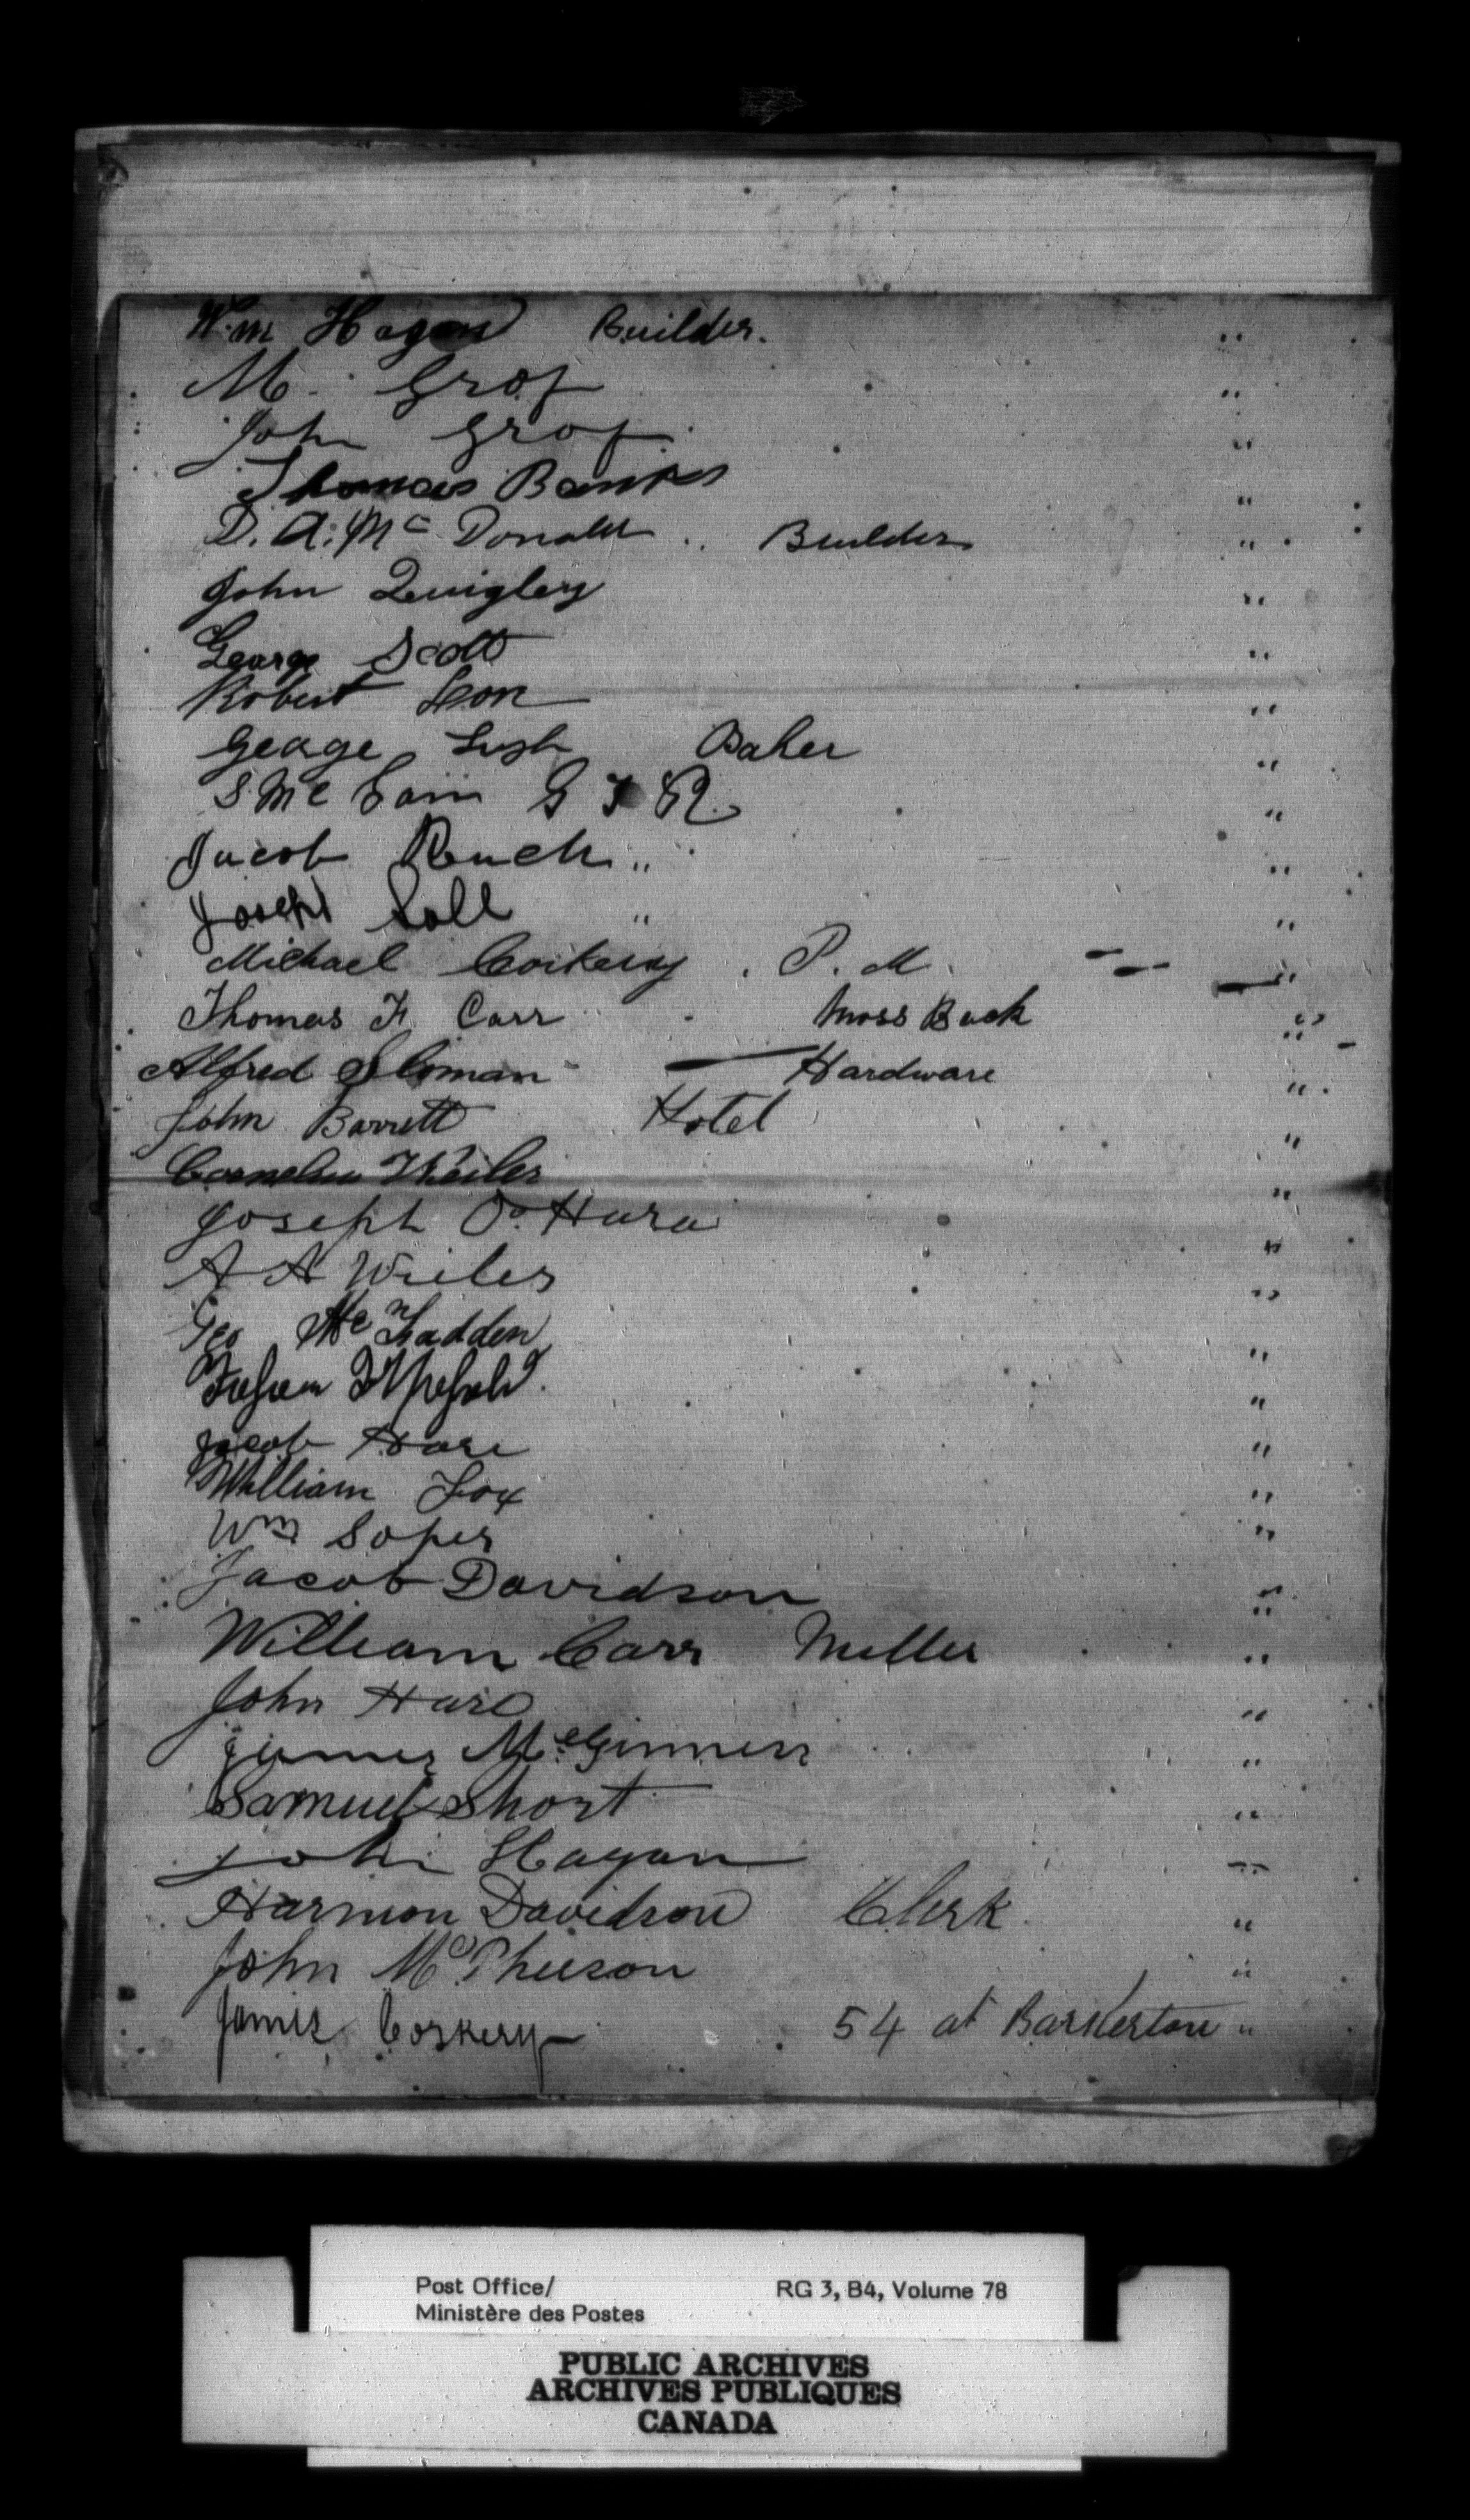 Wm Hagen Builder. "
M. Grof "
John Grof "
Thomas Banks "
D. A. Mc Donald Builder "
John Quigley "
George Scott "
Robert Leon "
George Lush Baker "
S. Mc Cain G T R. "
Jacob Ruch " "
Joseph Soll " "
Michael Corkery . P. M. "
Thomas F. Carr Moss Back "
Alfred Sloman — Hardware "
John Barrett Hotel "
Cornelius Weiler "
Joseph O'Hara "
A A Weiler "
Geo McFadden "
"
Jacob Hare "
William Fox "
Wm Soper "
Jacob Davidson "
William Carr Miller "
John Hare "
James McGinness "
Samuel Short "
John Hagan "
Harmon Davidson Clerk "
John McPheeson "
James Corkery 54 at Barkerton "
Post Office/ RG 3, B4, Volume 78
Ministère des Postes
PUBLIC ARCHIVES
ARCHIVES PUBLIQUES
CANADA